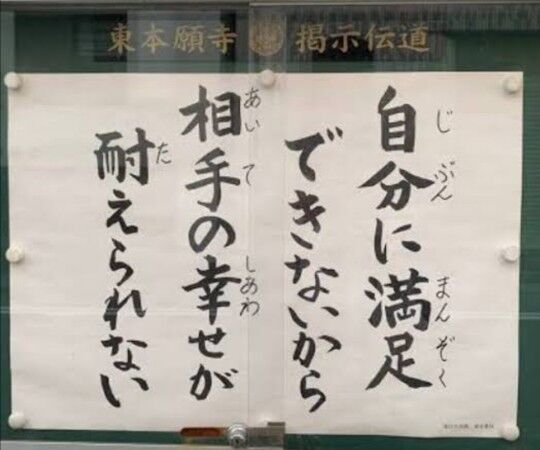 東本願寺 掲示伝道
自分に満足
できないから
相手の幸せが
耐えられない
じぶん まんぞく
あいて しあわ
た